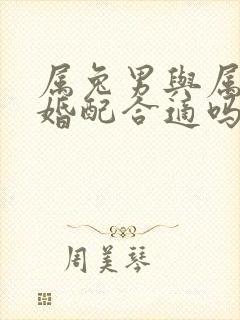 属兔男與属
婚配合適吗
周美琴